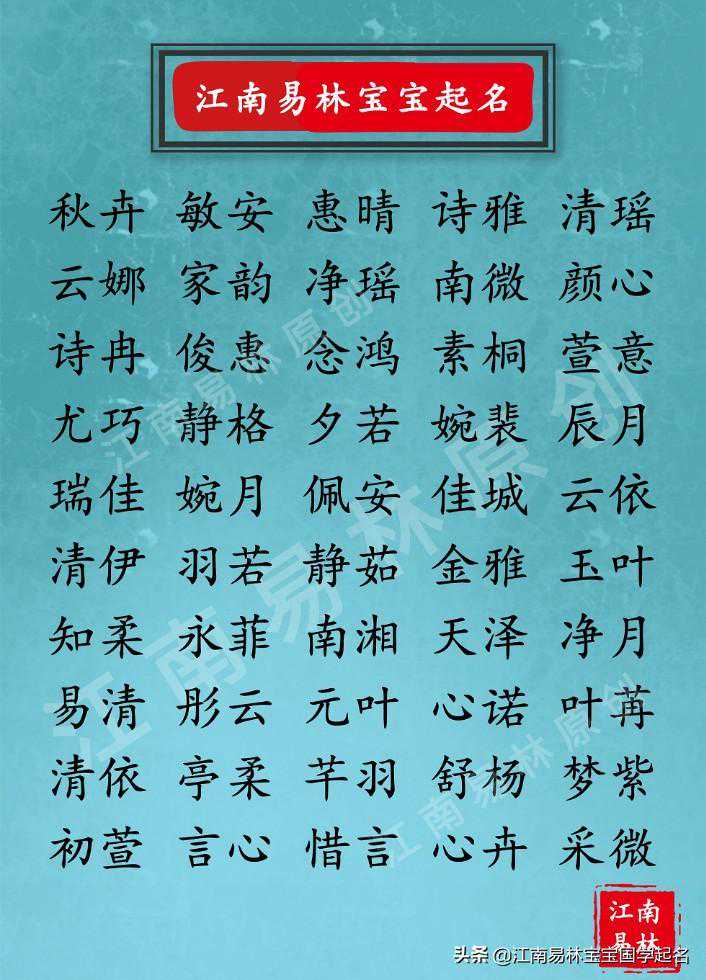 江南易林宝宝起名
秋卉 敏安 惠晴 诗雅 清瑶
云娜 家韵 净瑶 南微 颜心
诗冉 俊惠 念鸿 素桐 萱意
尤巧 静格 夕若 婉裴 辰月
瑞佳 婉月 佩安 佳城 云依
清伊 羽若 静茹 金雅 玉叶
知柔 永菲 南湘 天泽 净月
易清 彤云 元叶 心诺 叶苒
清依 亭柔 芊羽 舒杨 梦紫
初萱 言心 惜言 心卉 采微
江南易林原创
江南易林原创
江南易林原创
江南
易林
头条 @江南易林宝宝国学起名